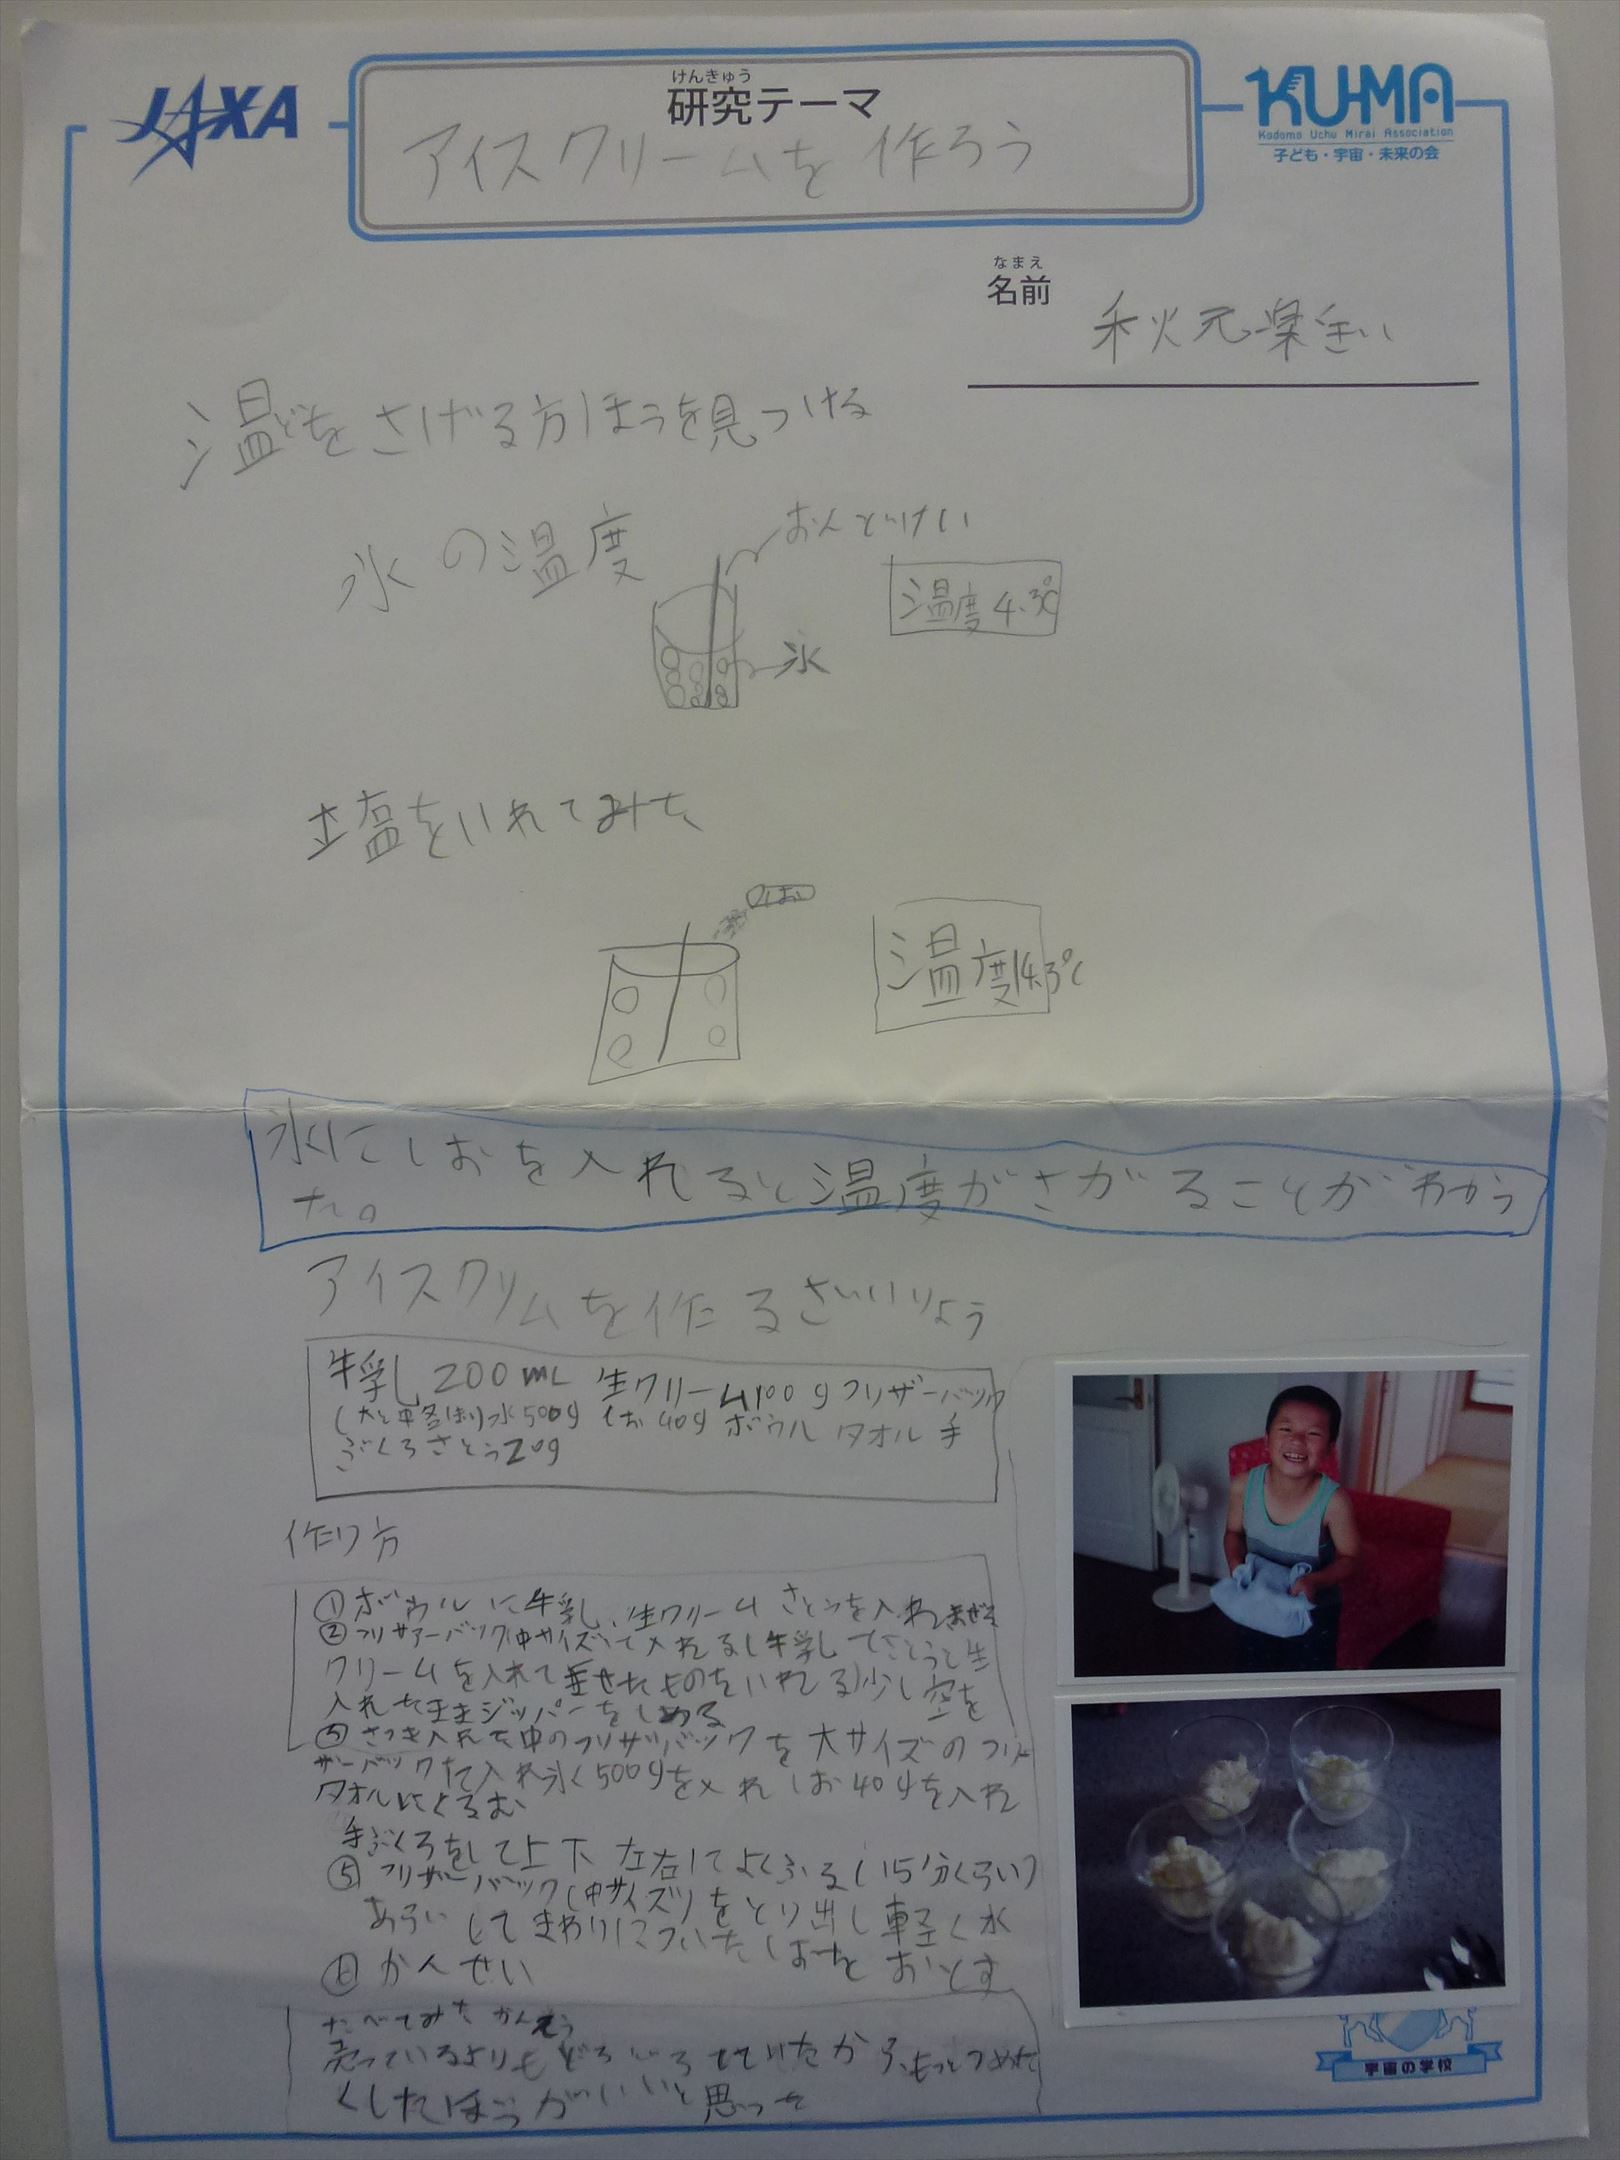 JAXA
けんきゅう
研究テーマ
KU-MA
Kodomo Uchu Mirai Association
子ども・宇宙・未来の会
アイスクリームを作ろう
なまえ
名前
秋元楽
温どをさげる方ほうを見つける
氷の温度
おんどけい
温度4.3℃
氷
塩をいれてみた
しお
温度
氷にしおを入れると温度がさがることがわかっ
た。
アイスクリムを作たるざいいりょう
牛乳し 200mL 生クリーム100g フリザーバック
氷500g しお 40g ボウル タオル 手
ぶくろさとう20g
作たり方
①ボウルに牛乳、生クリームさとうを入れまぜる
②フリザーバック(中サイズ)て入れる(牛乳してさとうと生
クリームを入れて混せたものをいれる)少し空を
入れたままジッパーをしめる
さっき入れた中のフリザバックを大サイズのフリ
ザーバックて入れ氷500gを入れしお40gを入れ
タオルにくるむ
手ぶくろをして上下左右してよくふる(15分くらい)
⑤フリザーバック(中サイズ)をとり出し軽く水
あらいしてまわりについたしおをおとす
かんせい
たべてみたかんそう
売っているよりもどろどろしていたから、もっとつめた
くしたほうがいいと思った
宇宙の学校